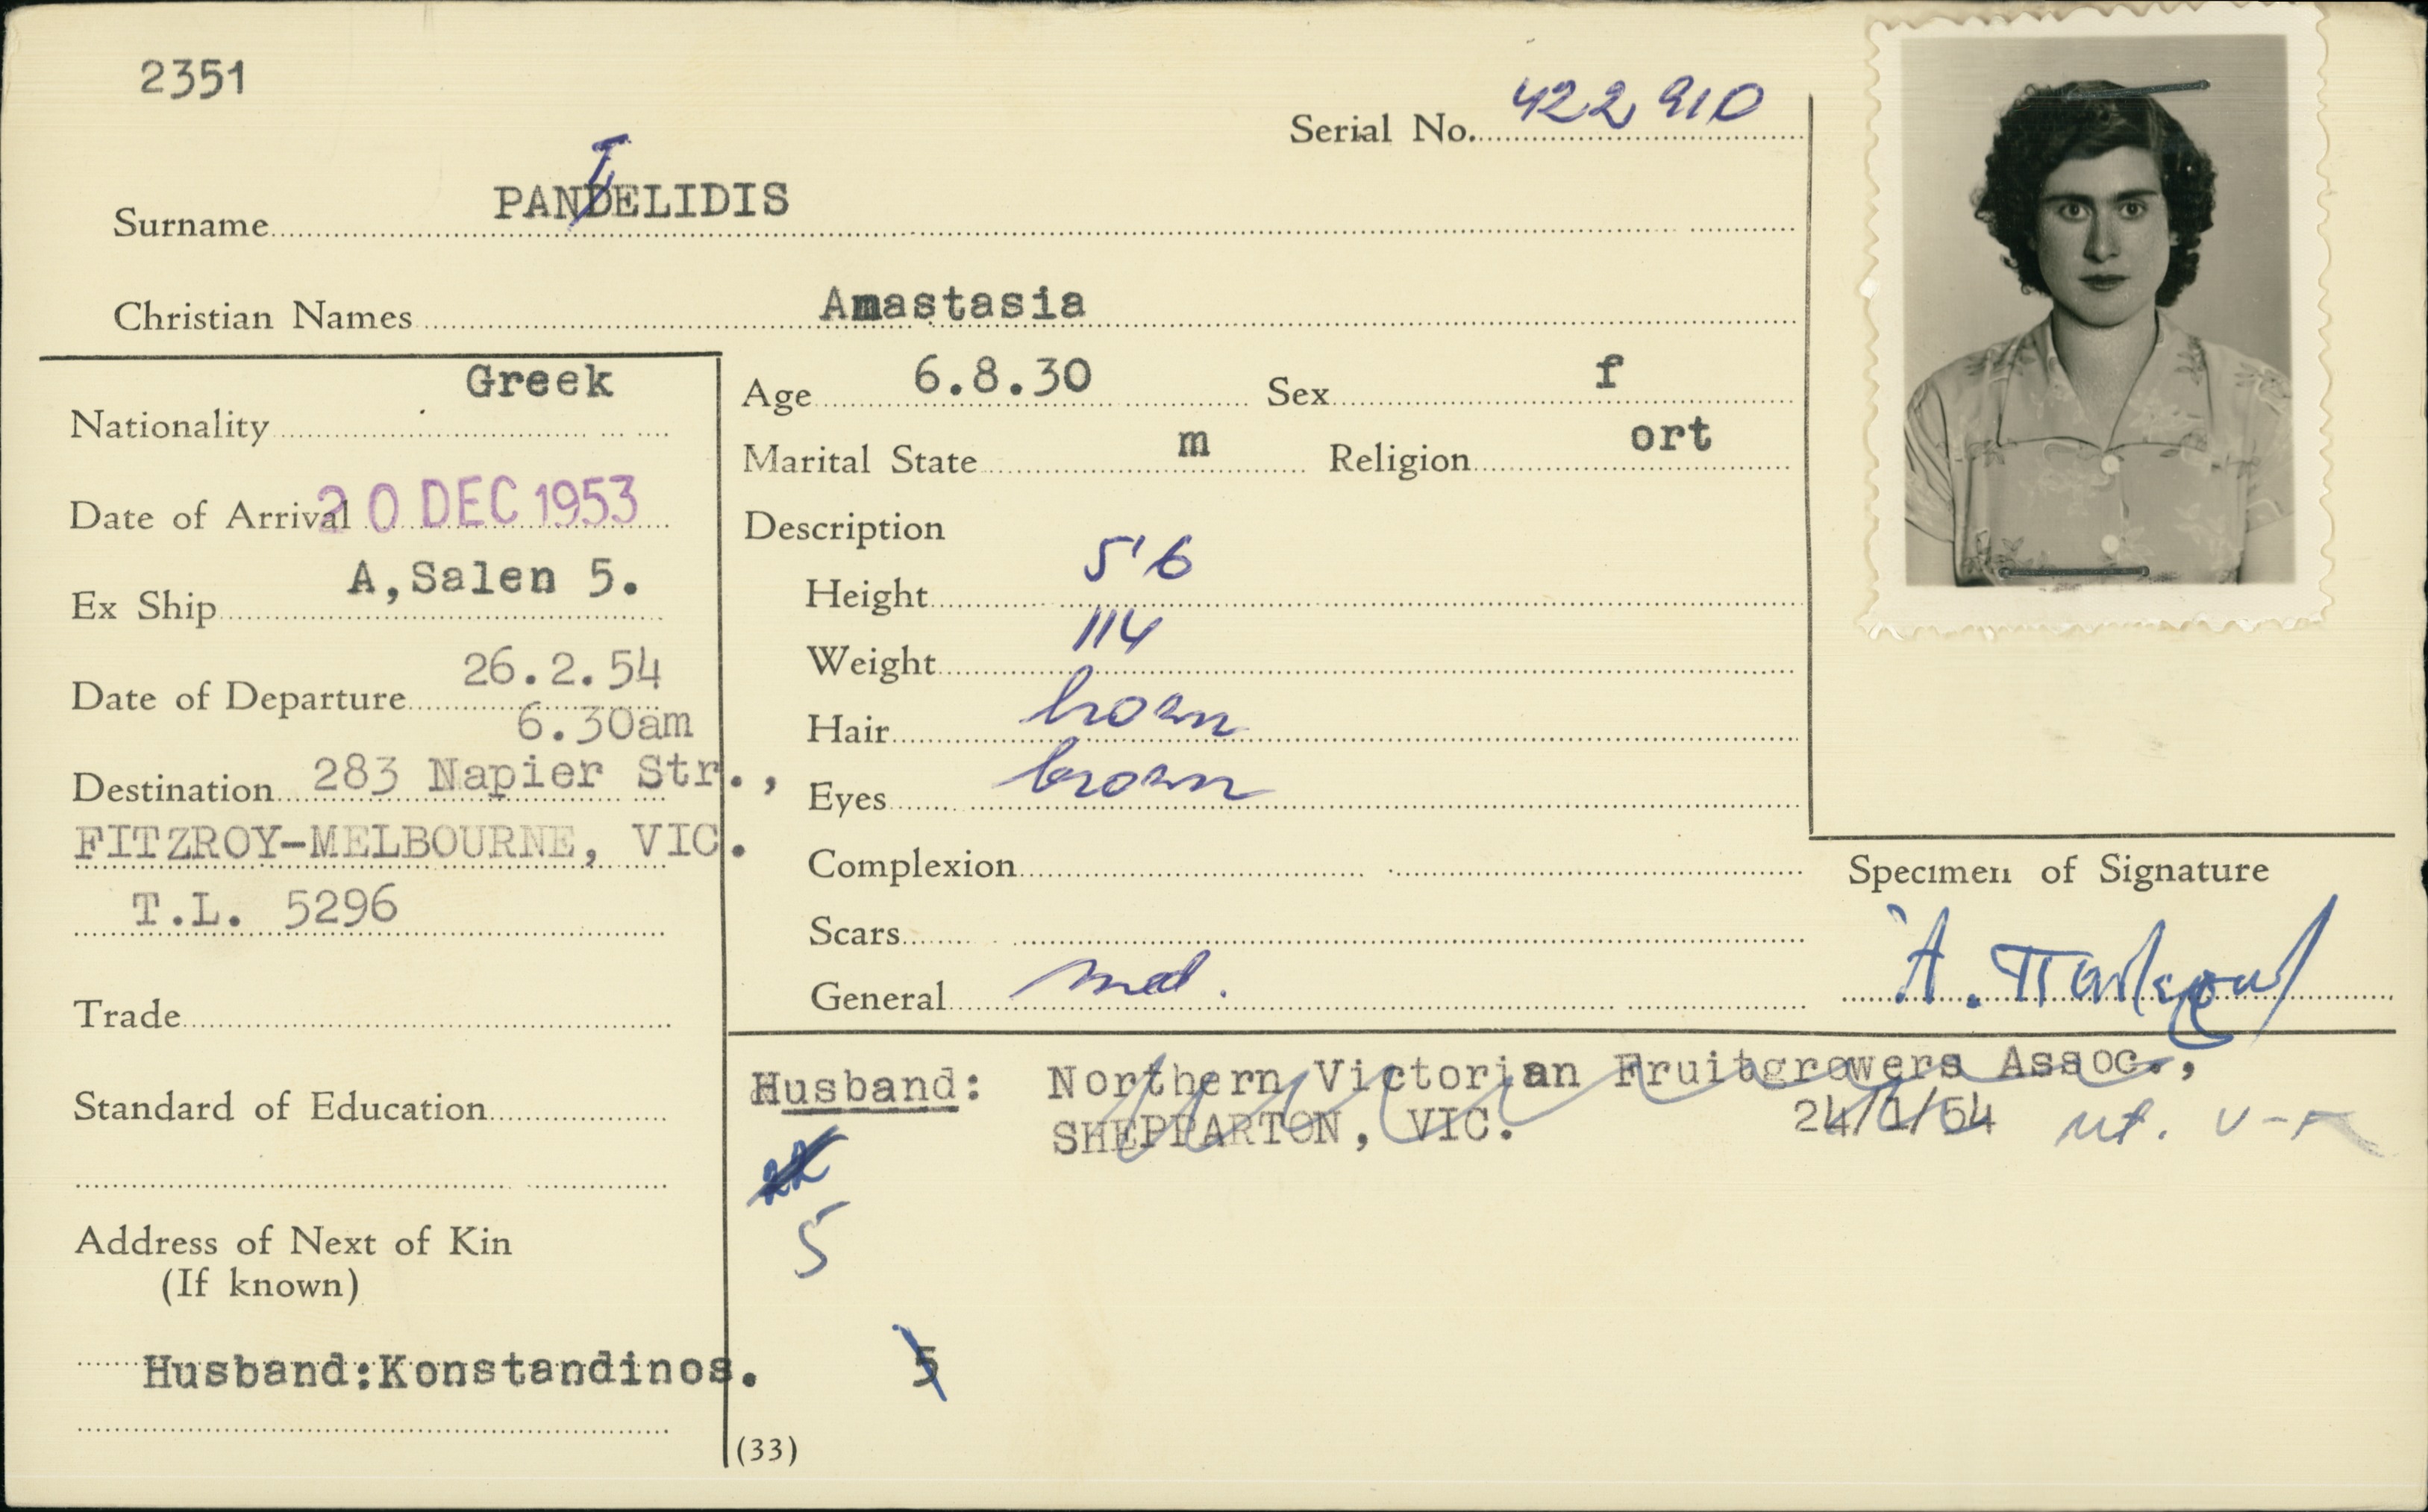 2351
Serial No. 422910
T
Surname PANDELIDIS
Christian Names Anastasia
Nationality Greek
Date of Arrival 20 DEC 1953
Ex Ship A,Salen 5.
Date of Departure 26.2.54
6.30am
Destination 283 Napier Str.,
FITZROY-MELBOURNE, VIC.
T.L. 5296
Trade
Standard of Education
Address of Next of Kin
(If known)
Husband:Konstandinos.
Age 6.8.30 Sex f
Marital State m Religion ort
Description
Height 5'6
Weight 114
Hair brown
Eyes brown
Complexion
Scars
General med.
Specimen of Signature
Husband: Northern Victorian Fruitgrowers Assoc.,
SHEPPARTON, VIC. 24/1/54
5
5
(33)